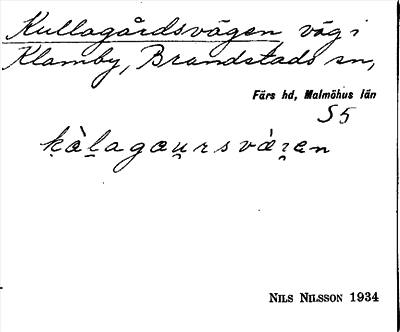 Kullagårdsvägen väg i
Klamby, Brandstads sn,
Färs hd, Malmöhus län
S5
NILS NILSSON 1934